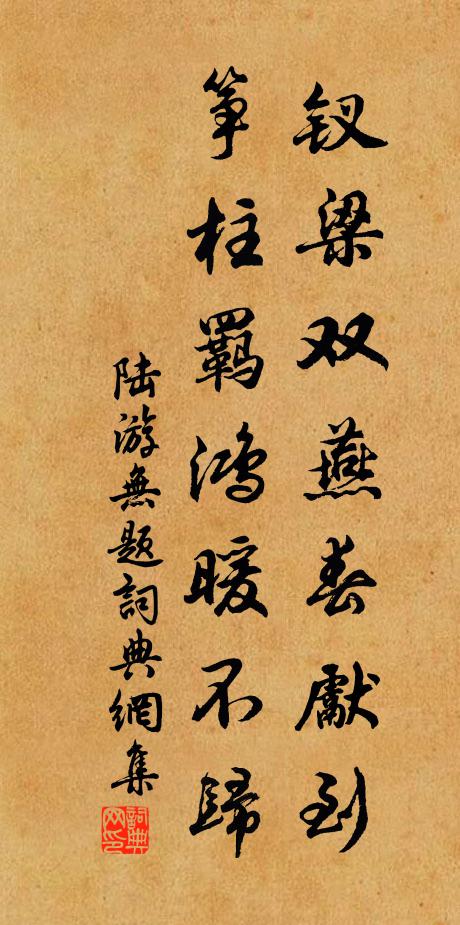 钗梁双燕春獻到
筝柱羈鸿暖不歸
陆游無题詞典網集
詞典网印